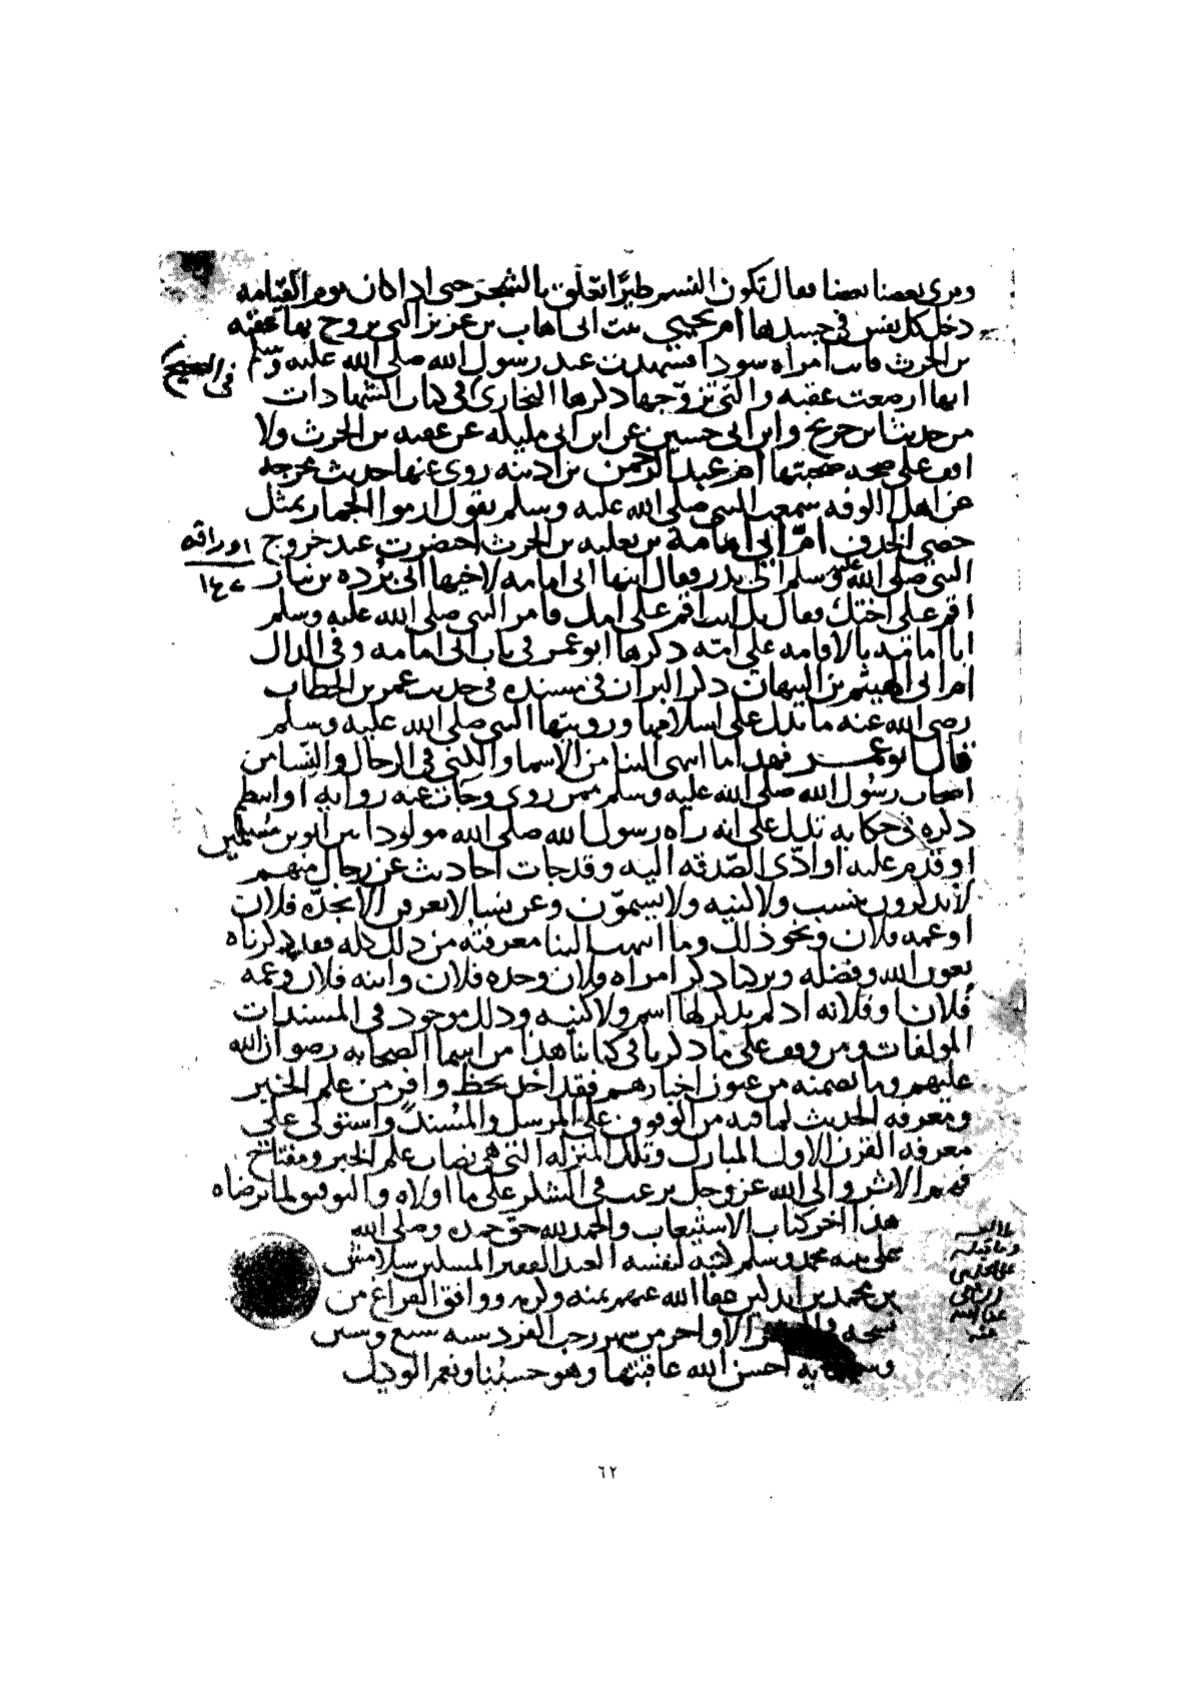 ويرى بعضنا بعضا فقال تكون النسم طيرًا تعلق بالشجر حتى اذا كان يوم القيامه
دخل كل نفس فى جسدها ام يحيى بنت ابى اهاب بن عزيز التى تزوج بها عقبه
بن الحرث فاتت امراه سودا فشهدت عند رسول الله صلى الله عليه وسلم
انها ارضعت عقبه والتى تزوجها ذكرها البخارى فى كتاب الشهادات
فى الصحيح
من حديث ابن جريج وابن ابى حسين عن ابن ابى مليكه عن عقبه بن الحرث ولا
اقف على صحه صحبتها ام عبد الرحمن بن اذينه روى عنها حديث مخرجه
عن اهل الكوفه سمعت النبى صلى الله عليه وسلم يقول ارموا الجمار بمثل
حصى الخذف ام ابى امامة بن ثعلبه بن الحرث احضرت عند خروج
النبى صلى الله عليه وسلم الى بدر فقال ابنها ابى امامه لاخيها ابى برده بن نيار
اوراقه
اقم على اختك فقال بل انت اقم على امك فامر النبى صلى الله عليه وسلم
ابا امامه بالاقامه على امه ذكرها ابو عمر فى باب ابى امامه وفى
ام ابى الهيثم بن التيهان ذكر البزار فى مسنده فى حديث عمر بن الخطاب
رضى الله عنه ما يدل على اسلامها ورويتها النبى صلى الله عليه وسلم
قال ابو عمر فهذا ما انتهى الينا من الاسما والكنى فى الرجال والنسا من
اصحاب رسول الله صلى الله عليه وسلم ممن روى وجات عنه روايه او انتظم
ذكره فى حكايه تدل على انه راه رسول الله صلى الله مولودا بين ابوين مسلمين
او قدم عليه او ادّى الصّدقه اليه وقد جات احاديث عن رجال منهم
لا يذكرون بنسب ولا كنيه ولا يسمّون وعن نسا لا يعرفن الا بجدّه فلان
او عمه فلان ونحو ذلك وما انتهت الينا معرفته من ذلك كله فقد ذكرناه
بعون الله وفضله وتركنا ذكر امراه فلان وجده فلان وابنه فلان وعمه
فلان وفلانه اذ لم يذكر لها اسم ولا كنيه وذلك موجود فى المسندات
المولفات ومن وقف على ما ذكرنا فى كتابنا هذا من اسما الصحابه رضوان الله
عليهم وما تضمنه من عيون اخبارهم فقد اخذ بحظ وافر من علم الخبر
ومعرفه الحديث لما فيه من الوقوف على المرسل والمسند واستولى على
معرفه القرن الاول المبارك وتلك المنزله التى هى نصاب علم الخبر ومفتاح
فهم الاثر والى الله عز وجل نرغب فى الشكر على ما اولاه والتوفيق لما يرضاه
هذا اخر كتاب الاستيعاب والحمد لله حق حمده وصلى الله
على نبيه محمد وسلم كتبه لنفسه العبد الفقير المسلم سلامش
بن محمد بن عفا الله عنهم بمنه وكرمه ووافق الفراغ من
نسخه الاواخر من شهر رجب الفرد سنه سبع وستين
احسن الله عاقبتها وهو حسبنا ونعم الوكيل
٦٢